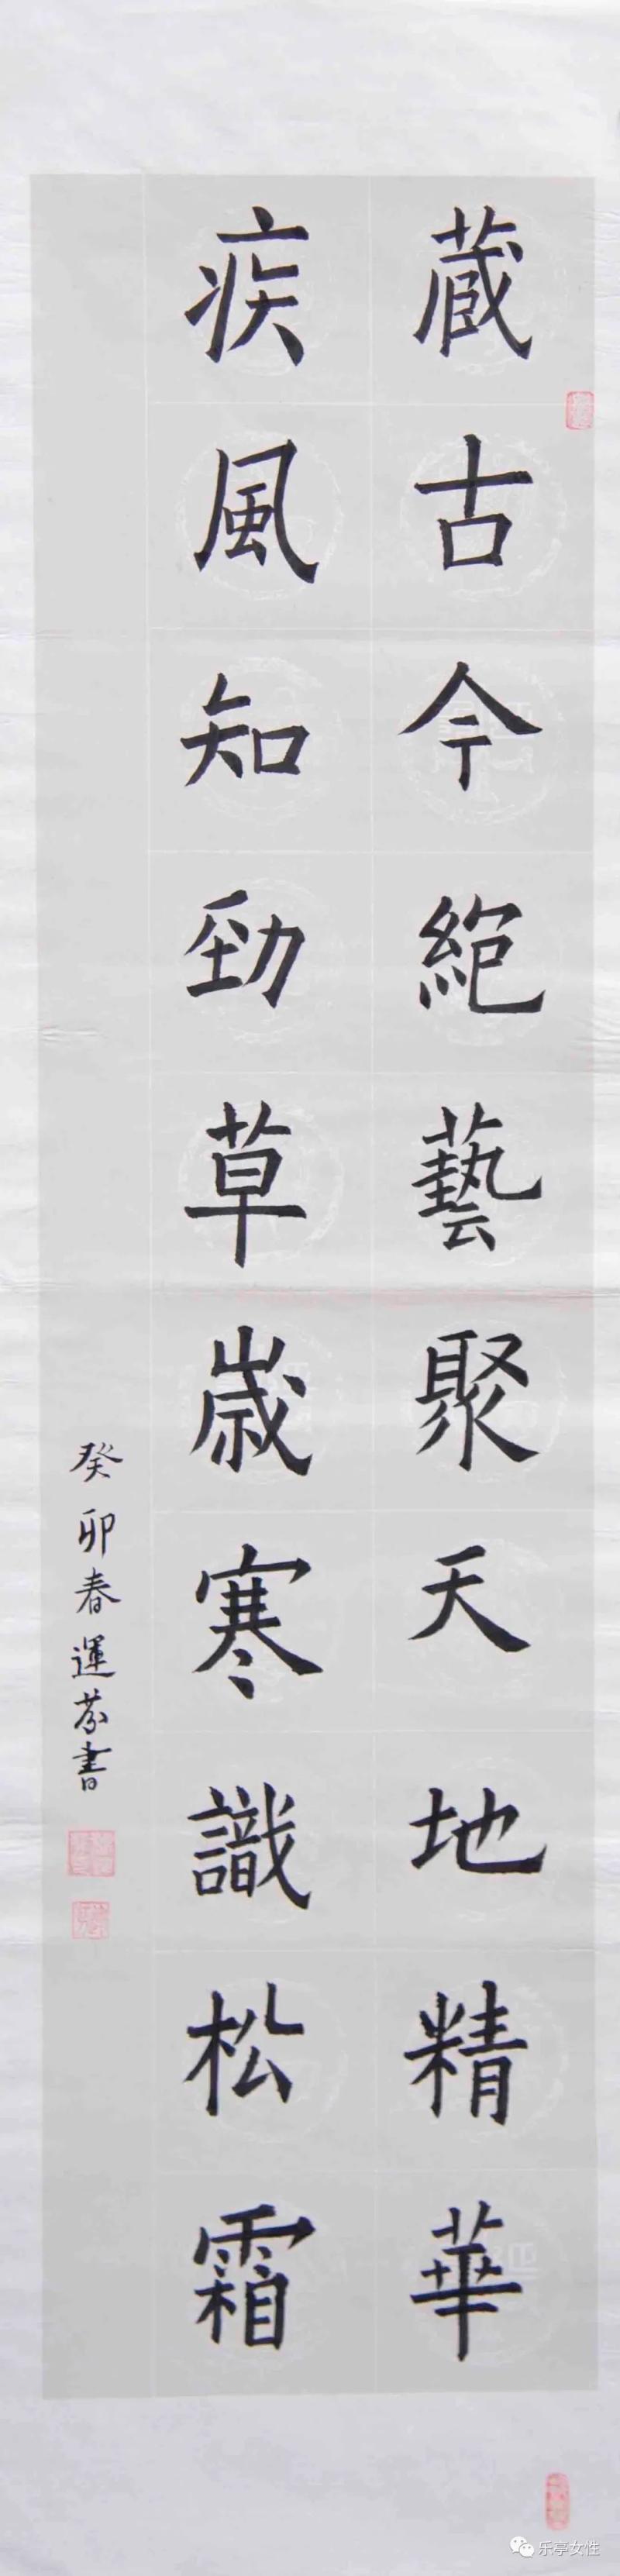 蔵古今絕藝聚天地精華
疾風知勁草歲寒識松霜
癸卯春運芬書
乐亭女性